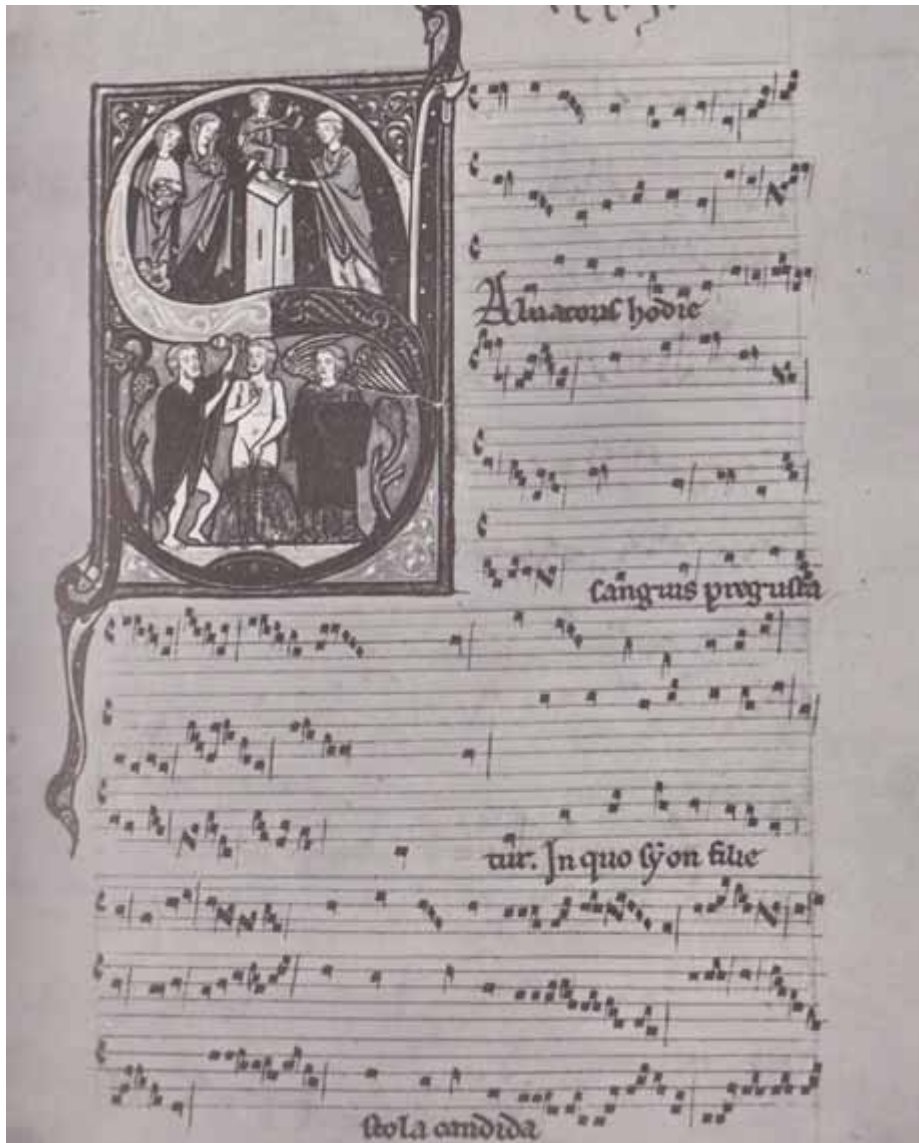 SAluatoris hodie
sanguis pregusta
tur. In quo sẏon filie
stola candida